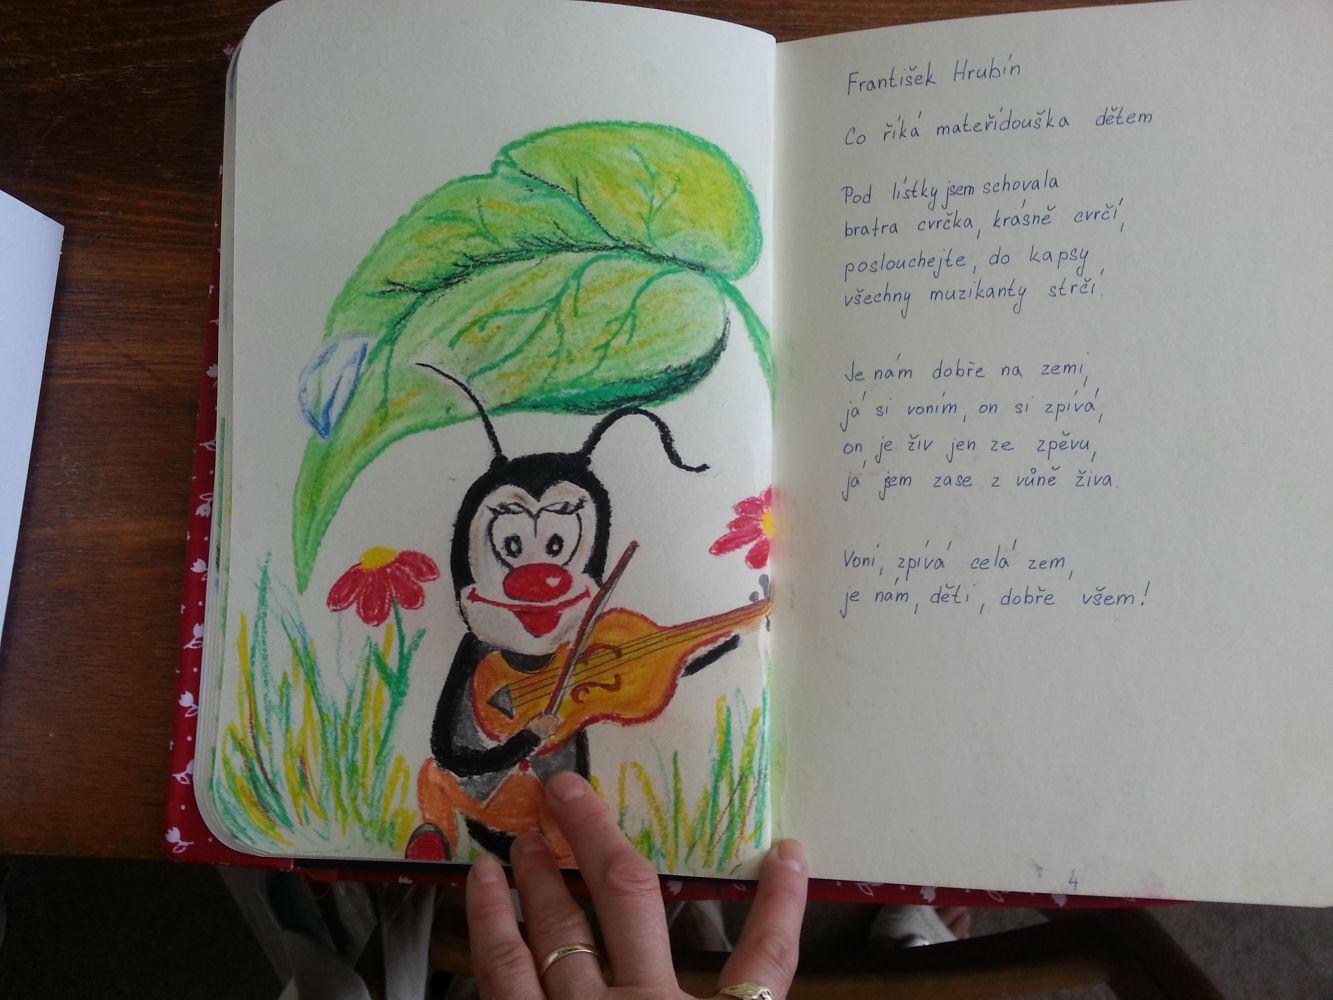 František Hrubín
Co říká mateřídouška dětem
Pod lístky jsem schovala
bratra cvrčka, krásně cvrčí,
poslouchejte, do kapsy
všechny muzikanty strčí.
Je nám dobře na zemi,
já si voním, on si zpívá,
on je živ jen ze zpěvu,
já jsem zase z vůně živa.
Voní, zpívá celá zem,
je nám, děti, dobře všem!
4